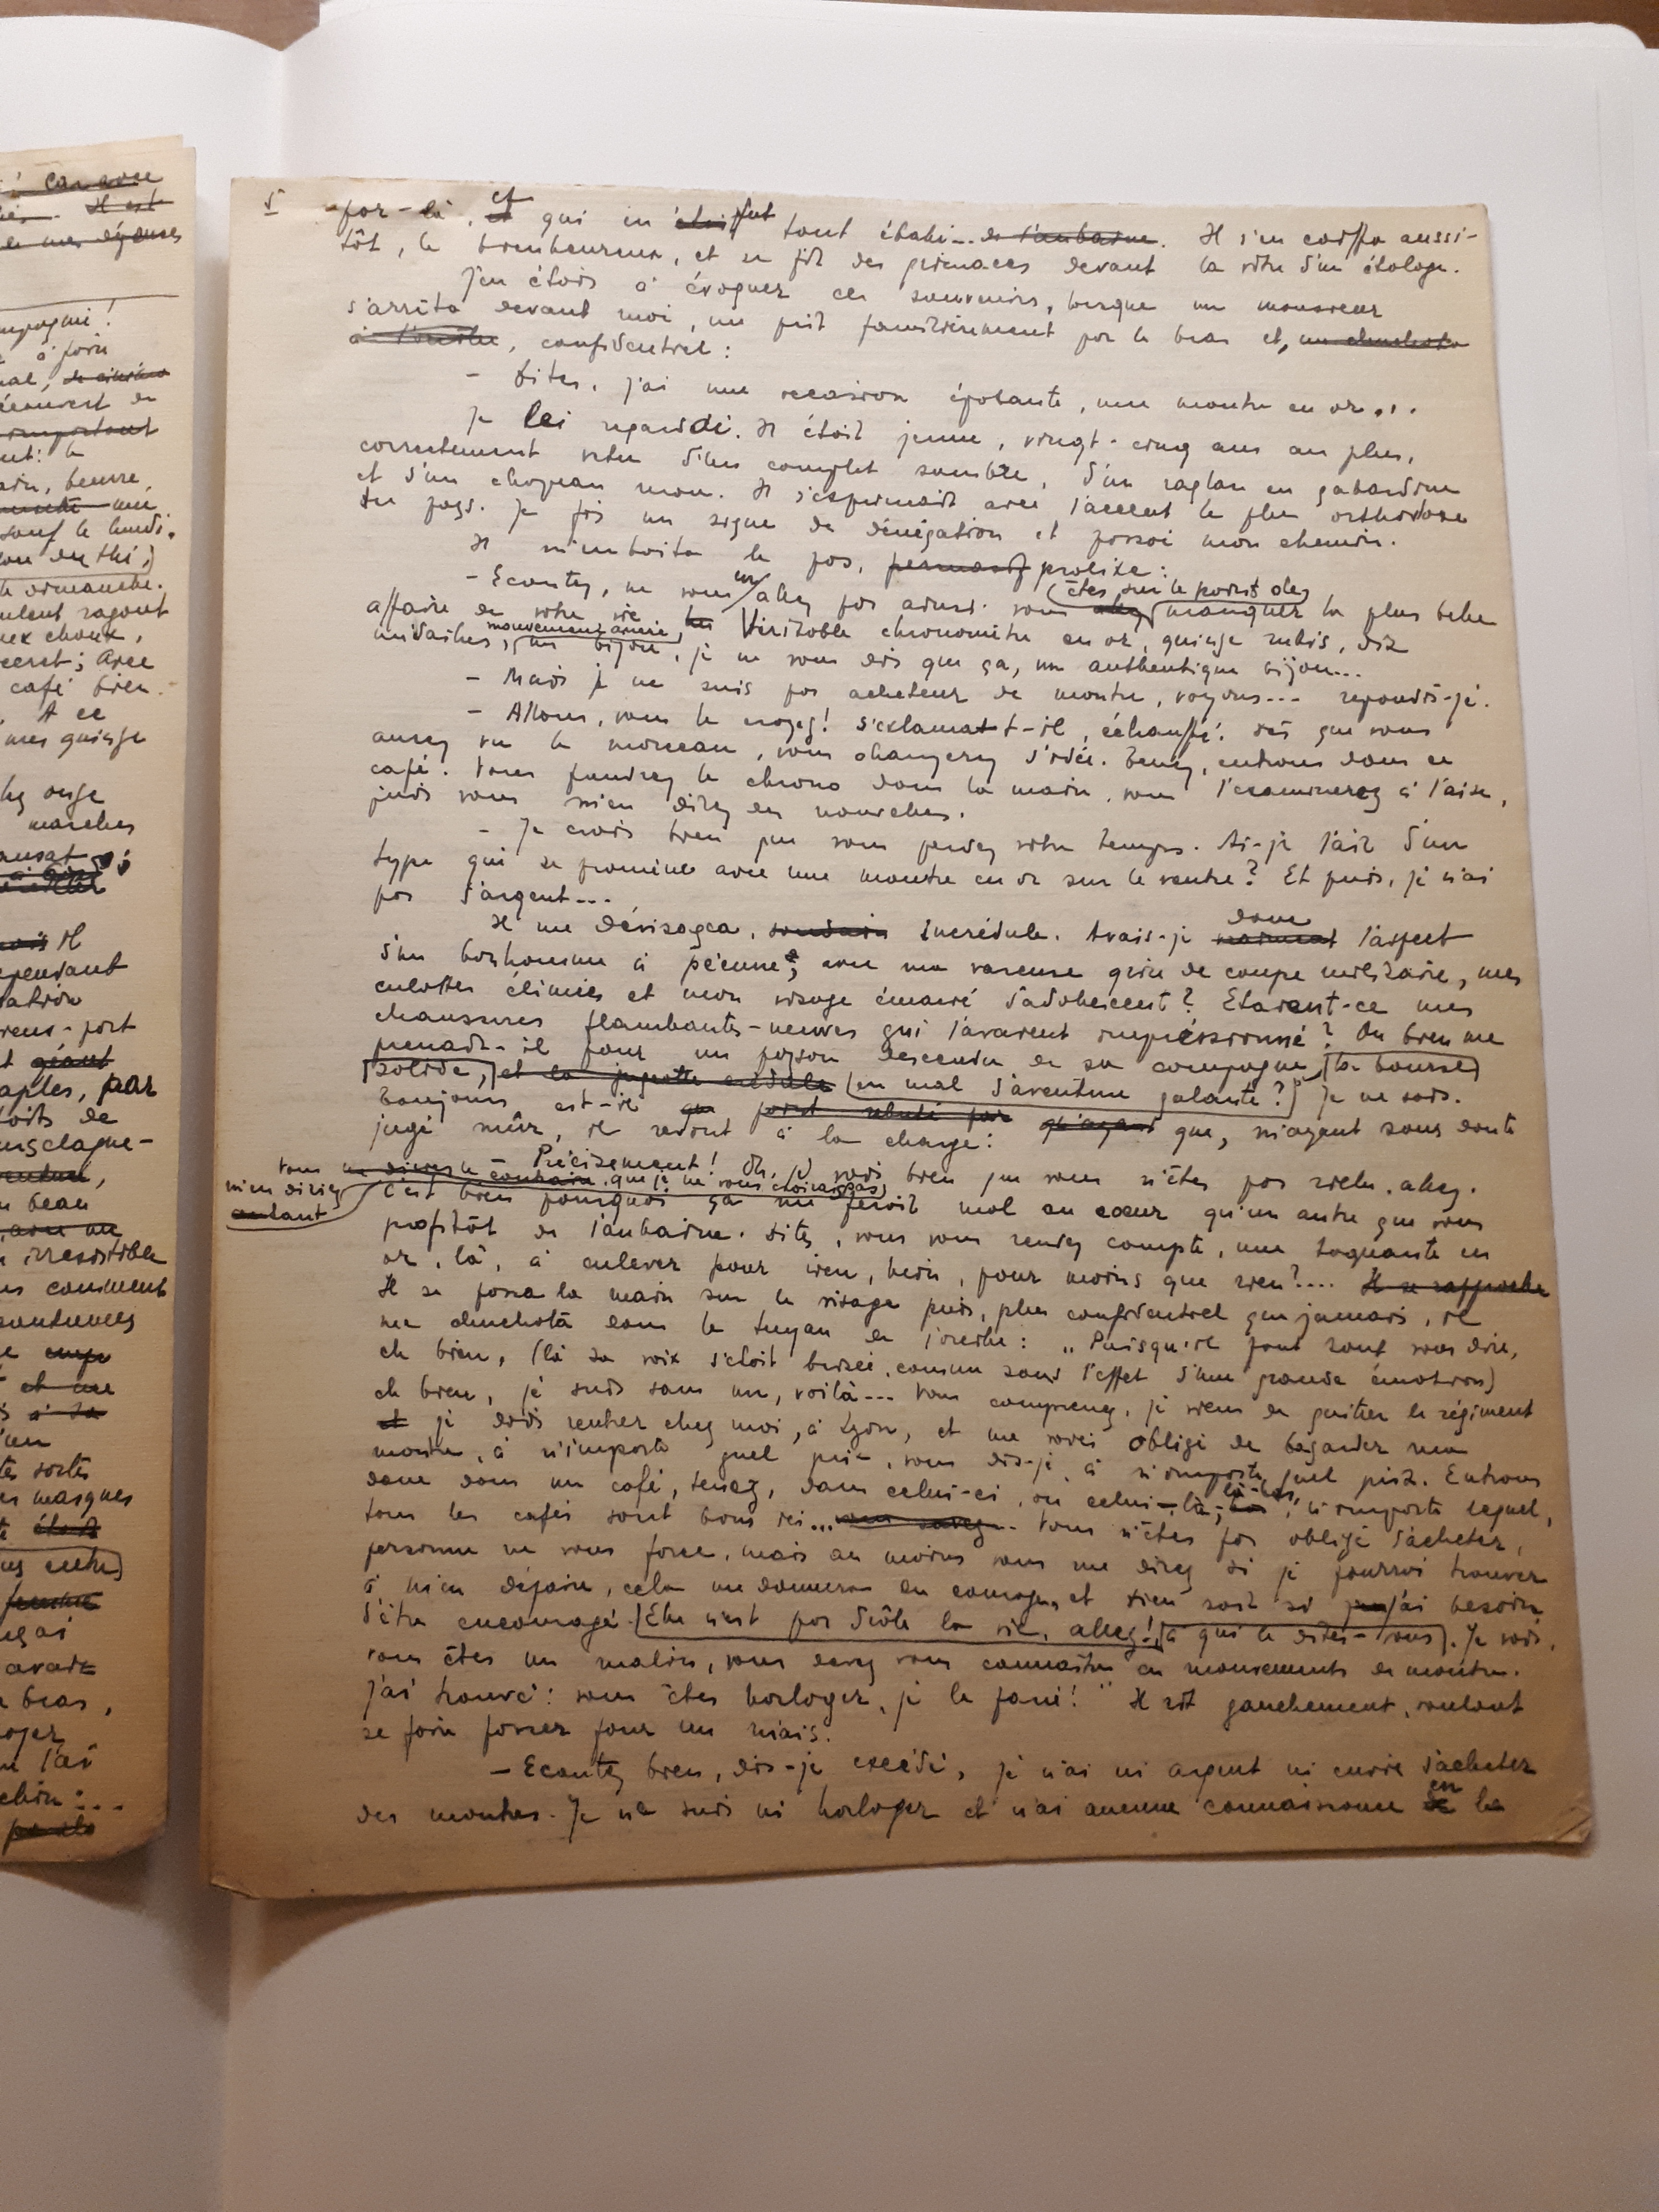 ! Car avec
Il est
mes dépenses
à faire
découvert
important
beurre,
sauf le lundi.
dimanche.
ragoût
choux,
Avec
café
A ce
mes quinze
onze
marches
Il
cependant
géant
par
toits de
beau
irrésistible
comment
et une
sortes
masques
était
avait
bras,
5
par-là, et qui en était fut tout ébahi... de l'aubaine. Il s'en coiffa aussi-
tôt, le bienheureux, et se fit des grimaces devant la vitre d'un étalage.
J'en étais à évoquer ces souvenirs, lorsque un monsieur
s'arrêta devant moi, me prit familièrement par le bras et, me chuchota
à l'oreille, confidentiel :
- Dites, j'ai une occasion épatante, une montre en or...
Je le regardai. Il était jeune, vingt-cinq ans au plus,
correctement vêtu d'un complet sombre, d'un raglan en gabardine
et d'un chapeau mou. Il s'exprimait avec l'accent le plus orthodoxe
du pays. Je fis un signe de dénégation et passai mon chemin.
Il m'emboîta le pas, prolixe :
- Ecoutez, ne vous en allez pas ainsi. vous êtes sur le point de manquer la plus belle
affaire de votre vie. Véritable chronomètre en or, quinze rubis, dix
médailles, mouvement ancre, un bijou, je ne vous dis que ça, un authentique bijou...
- Mais je ne suis pas acheteur de montre, voyons... répondis-je.
- Allons, vous le croyez! s'exclama-t-il, échauffé. dès que vous
aurez vu le morceau, vous changerez d'idée. Venez, entrons dans ce
café. Vous prendrez le chrono dans la main, vous l'examinerez à l'aise,
puis vous m'en direz des nouvelles.
- Je crois bien que vous perdez votre temps. Ai-je l'air d'un
type qui se promène avec une montre en or sur le ventre? Et puis, je n'ai
pas d'argent...
Il me dévisagea, soudain incrédule. Avais-je vraiment donc l'aspect
d'un bonhomme à pécune, avec ma vareuse grise de coupe militaire, mes
culottes élimées et mon visage émacié d'adolescent? Etaient-ce mes
chaussures flambantes-neuves qui l'avaient impressionné? Ou bien me
prenait-il pour un paysan descendu de sa campagne, (la bourse
solide,) et la jugeotte crédule (en mal d'aventure galante?) Je ne sais.
Toujours est-il que, n'ayant sans doute
jugé mûr, il revint à la charge :
- Précisément! Oh, je vois bien que vous n'êtes pas riche, allez.
Vous m'en diriez autant que je ne vous croirais pas,
C'est bien pourquoi ça me ferait mal au cœur qu'un autre que vous
profitât de l'aubaine. Dites, vous vous rendez compte, une toquante en
or, là, à enlever pour rien, hein, pour moins que rien?.... Il se rapproche
Il se passa la main sur le visage puis, plus confidentiel que jamais, il
me chuchota dans le tuyau de l'oreille : „Puisqu'il faut tout vous dire,
eh bien, (là sa voix s'était brisée comme sous l'effet d'une grande émotion)
eh bien, je suis sans un, voilà... Vous comprenez, je viens de quitter le régiment
et je dois rentrer chez moi, à Lyon, et me voici obligé de bazarder ma
montre, à n'importe quel prix, vous dis-je, à n'importe quel prix. Entrons
donc dans un café, tenez, dans celui-ci, ou celui-là, là-bas, n'importe lequel,
tous les cafés sont bons ici... vous savez... Vous n'êtes pas obligé d'acheter,
personne ne vous force, mais au moins vous me direz si je pourrai trouver
à m'en défaire, cela me donnera du courage, et Dieu sait si j'ai besoin
d'être encouragé. (Elle n'est pas drôle la vie, allez! (à qui le dites-vous). Je vois,
vous êtes un malin, vous devez vous connaître en mouvements de montre.
J'ai trouvé : vous êtes horloger, je le parie!" Il rit gauchement, voulant
se faire passer pour un niais.
- Ecoutez bien, dis-je excédé, je n'ai ni argent ni envie d'acheter
des montres. Je ne suis ni horloger et n'ai aucune connaissance en la